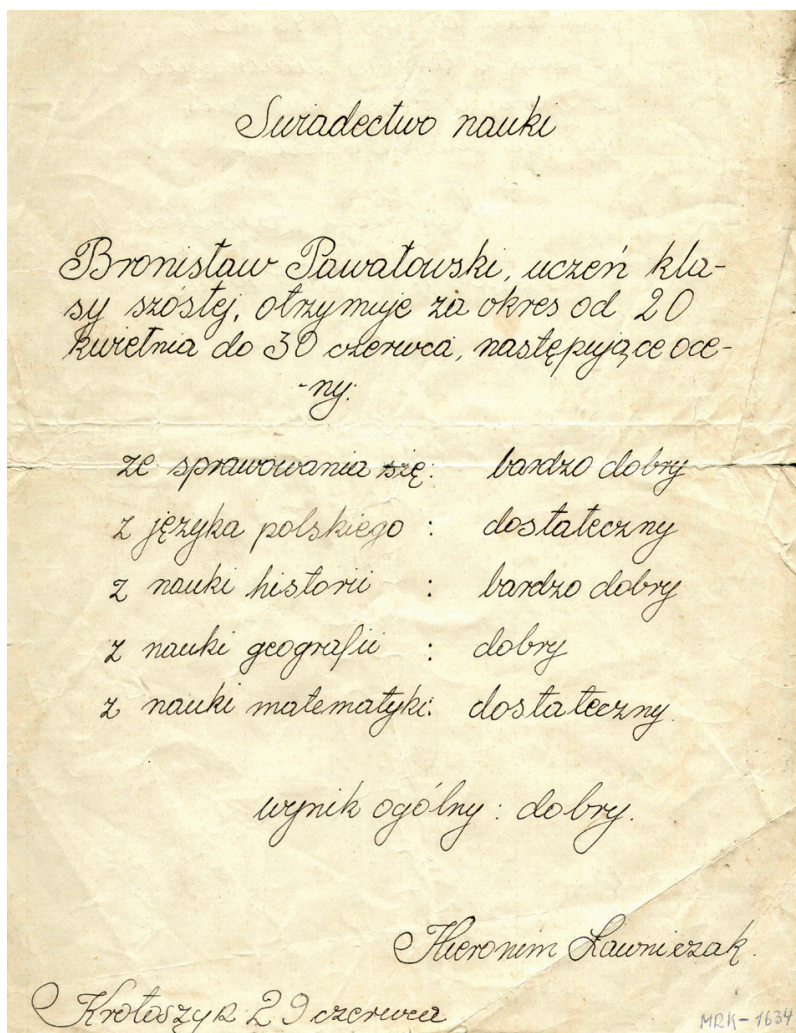 Świadectwo nauki
Bronisław Pawałowski, uczeń kla-
sy szóstej, otrzymuje za okres od 20
kwietnia do 30 czerwca, następujące oce-
-ny:
ze sprawowania się: bardzo dobry
z języka polskiego : dostateczny
z nauki historii : bardzo dobry
z nauki geografii : dobry
z nauki matematyki: dostateczny.
wynik ogólny : dobry.
Hieronim Ławniczak.
Krotoszyn 29 czerwca
MRK-1634